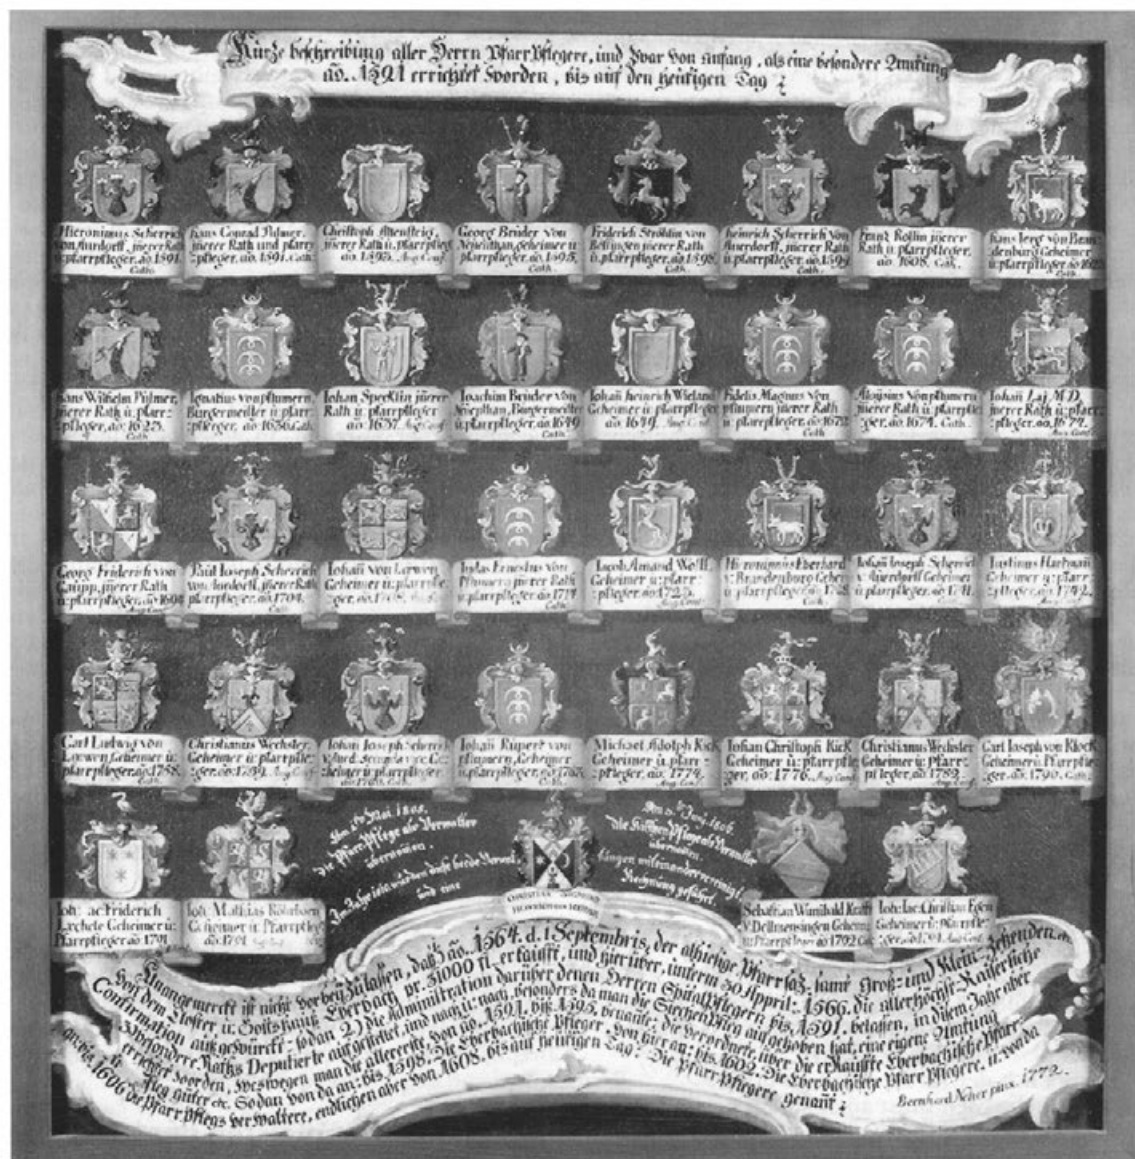 Kurze beschreibung aller Herrn Pfarrpflegere, und zwar von anfang, als eine besondere Amtung
aō. 1591 errichtet worden, bis auf den heutigen Tag
Hieronimus Scherrich
von Aurdorff, jn̄erer Rath
u: pfarrpfleger. aō. 1591.
Cath.
Hans Conrad Pflmer,
jn̄erer Rath und pfarr
=pfleger. aō. 1591. Cath.
Christoph Altensteig,
jn̄erer Rath ü. Pfarrpfleg
aō. 1593. Aug. Conf.
Georg Brüder von
geheimer ü
pfarrpfleger. aō. 1595.
Cath.
Friderich Ströhlin von
jn̄erer Rath
u: pfarrpfleger. aō. 1598.
Cath.
Heinrich Scherrich von
Aüerdorff, jn̄erer Rath
ü: pfarrpfleger. aō. 1599
Cath.
Franz Rollin jn̄erer
Rath ü: pfarrpfleger.
aō. 1608. Cath.
Hans Jerg von Bran=
denburg Geheimer
ü: pfarrpfleger aō
Cath.
Hans Wilhelm Pflmer,
jn̄erer Rath ü. pfarr=
=pfleger. aō. 1623.
Cath.
Ignatius von pflum̄ern,
Bürgermeister ü: pfarr=
=pfleger. aō. 1636. Cath.
Johan Specklin jn̄erer
Rath ü: pfarrpfleger
aō. 1637. Aug. Conf.
Joachim Brüder von
Bürgermeister
ü: pfarrpfleger. aō. 1649
Cath.
Johan̄ Heinrich Wieland
Geheimer ü: pfarrpfleger
aō. 1649. Aug. Conf.
Fidelis Magnus von
pflum̄ern jn̄erer Rath
ü: pfarrpfleger. aō. 1672
Cath.
Aloÿsius von pflum̄ern
jn̄erer Rath ü: pfarrpfle=
ger. aō. 1674. Cath.
Johan̄ Laj. M.D.
jn̄erer Rath ü: pfarr=
=pfleger. aō. 1674.
Aug. Conf.
Georg Friderich von
Gaupp, jn̄erer Rath
ü: pfarrpfleger. aō.
Aug. Conf.
Paül Joseph Scherrich
von Aurdorff, jn̄erer Rath
pfarrpfleger. aō. 1704.
Cath.
Johan̄ von Loewen
Geheimer ü: pfarrpfle=
ger. aō. 1708. Aug. Conf.
Judas Ernestus von
Pflum̄ern jn̄erer Rath
ü: pfarrpfleger. aō.
Cath.
Jacob Amand Wolff,
Geheimer ü: pfarr=
=pfleger. aō. 1725.
Aug. Conf.
Hieronimus Eberhard
v: Brandenburg Geheim
ü: pfarrpfleger. aō.
Cath.
Johan̄ Joseph Scherrich
v: Aüerdorff Geheimer
ü: pfarrpfleger. aō.
Cath.
Justinus Hartman̄
Geheimer ü: pfarr=
=pfleger. aō. 1742.
Aug. Conf.
Carl Ludwig von
Loewen Geheimer ü:
pfarrpfleger. aō. 1758.
Christianus Wechsler,
Geheimer ü: pfarrpfle=
=ger. aō. 1759. Aug. Conf.
Johan̄ Joseph Scherrich
Ge=
heimer ü pfarrpfleger.
aō. Cath.
Johan̄ Rupert von
pflum̄ern, Geheimer
ü: pfarrpfleger. aō.
Cath.
Michael Adolph Kick
Geheimer ü: pfarr=
pfleger. aō. 1774.
Johan Christoph Kick
Geheimer ü: pfarrpfle=
ger. aō. 1776. Aug. Conf.
Christianus Wechsler
Geheimer ü: Pfarr=
pfleger. aō. 1789.
Aug. Conf.
Carl Joseph von Klock
Geheimer ü: Pfarrpfle=
ger. aō. 1790. Cath.
Joh: Jac: Friderich
Lechele Geheimer ü:
Pfarrpfleger aō. 1791
Joh: Mathias Rohrboen
Geheimer ü: Pfarrpfleg
aō. 1791
Mai. 1805.
die Pfarr Pflege als Verwalter
übernom̄en.
Den Junj. 1806.
die Kapellen Pflege als Verwalter
übernom̄en.
Im Jahr wurden diese beide Verwal=
tungen miteinander vereinigt,
und eine
Rechnung geführt.
CHRISTIAN
Sebastian Wunibald Kraft
v: Dellmensingen Geheim
ü: Pfarrpfleger aō 1792 Cath
Joh: Jac: Christian Egen
Geheimer ü: Pfarrpfle=
ger, aō. Aug. Conf.
Unangemerckt ist nicht vorbey zulassen, daß aō. 1564. d. 1 Septembris, der alhiesige Pfarrsaz, samt Groß: und Klein Zehenden. etc.
von dem Kloster, u: Gottshauß Eberbach pr. 31000 fl. erkaufft, und hierüber, unterm 30 Appril: 1566. die allerhöchst Kaiserliche
Confirmation außgewürckt: sodan̄ 2.) die Administration darüber denen Herren Spitalpflegern bis 1591. belassen, in disem Jahr aber
3.) besondere Raths Deputierte aufgestellet, und nach ü: nach, besonders da man die Siechen Pfleg aufgehoben hat, eine eigene Amtung
errichtet worden, weswegen man die allererste von aō. 1591. bis 1595. benañte: die verordnete, über die erkauffte Eberbachische Pfarr=
ü: Pfleg güter etc. Sodan von da an: bis 1598. Die Eberbachische Pfleger. von hier an: bis 1602. Die Eberbachische Pfarr Pflegere. u: von da
an: bis. 1606 die Pfarr Pflegs verwaltere, endlichen aber von 1608. bis auf heutigen Tag: Die Pfarr Pflegere genant
Bernhard Neher pinx. 1772.